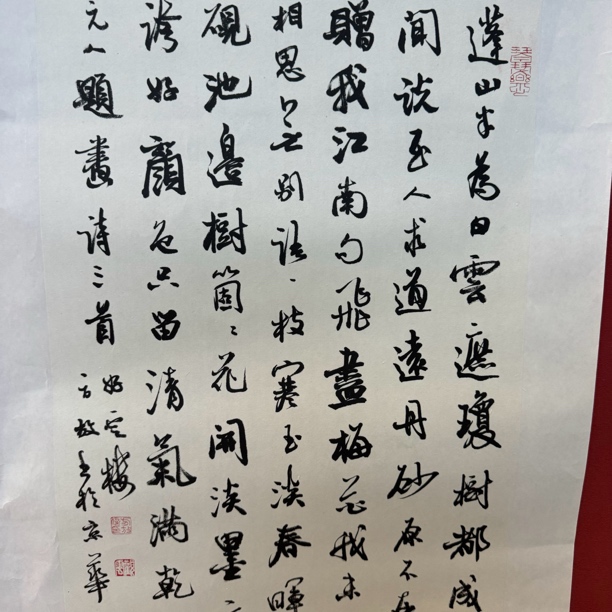 蓬山半為白雲遮瓊樹都成
聞說至人求道遠丹砂原不在
贈我江南句飛盡梅花我未
相思無別語一枝寒玉淡春暉
硯池邊樹箇箇花開淡墨
誇好顏色只留清氣滿乾
元人題畫詩三首
好雲樓
方放書於京華